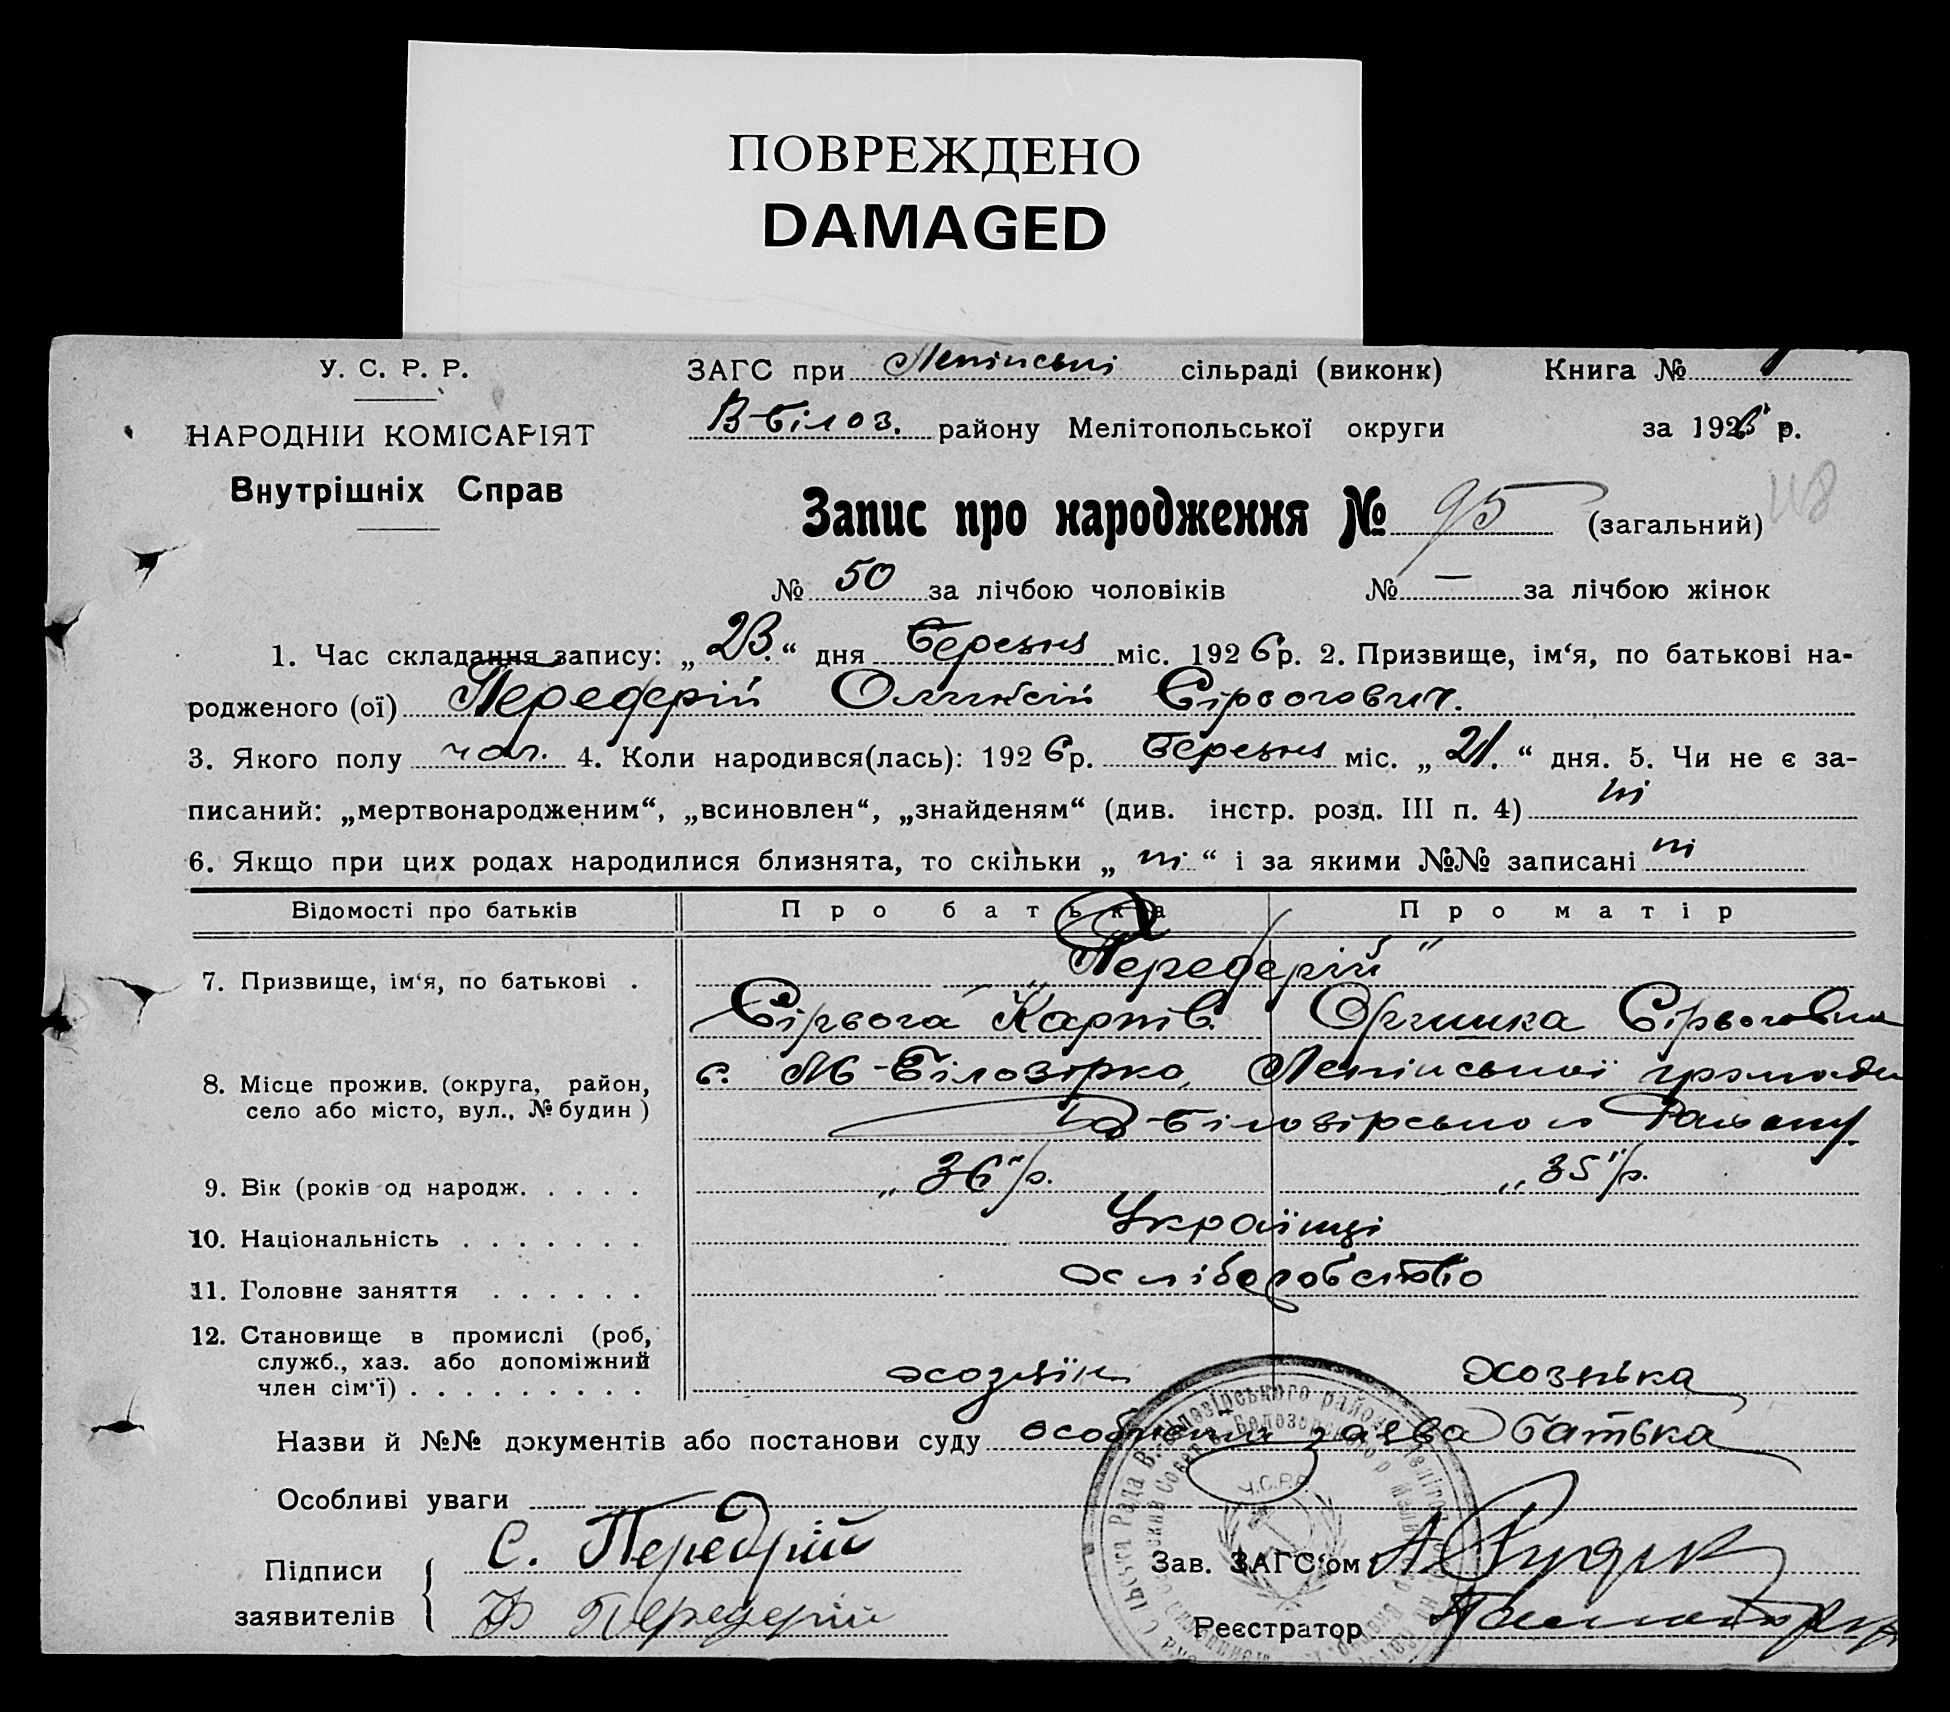 ПОВРЕЖДЕНО
DAMAGED
У. С. Р. Р.
ЗАГС при Ленінські сільраді (виконк) Книга №
В-Білоз. району Мелітопольської округи за 1926 р.
НАРОДНІЙ КОМІСАРІЯТ
Внутрішніх Справ
Запис про народження № 95 (загальний) 118
№ 50 за лічбою чоловіків № — за лічбою жінок
1. Час складання запису: „ 23. “ дня березня міс. 1926 р. 2. Призвище, ім‘я, по батькові на-
родженого (ої) Передерій Оликсій Сірьогович.
3. Якого полу чол. 4. Коли народився(лась): 1926 р. березня міс. „ 21. “ дня. 5. Чи не є за-
писаний: „мертвонародженим“, „всиновлен“, „знайденям“ (див. інстр. розд. III п. 4) ні
6. Якщо при цих родах народилися близнята, то скільки „ ні “ і за якими №№ записані ні
Відомості про батьків Про батька Про матір
„Передерій“
7. Призвище, ім‘я, по батькові .
Сірьога Карпів. Оришка Сірьоговна
с. М-Білозірка, Ленінської громади
8. Місце прожив. (округа, район,
село або місто, вул., № будин )
В-Білозірського Району
9. Вік (років од народж. . . . . „36“ р. „35“ р.
10. Національність . . . . . . . Українці
11. Головне заняття . . . . . . хліборобство
12. Становище в промислі (роб,
служб., хаз. або допоміжний
член сім‘ї) . . . . . . . . . хозяїн хозяйка
Назви й №№ документів або постанови суду особиста заява батька
Особливі уваги
У.С.Р.Р.
Підписи
заявителів
С. Передрій
Передерій
Зав. ЗАГС‘ом
Реєстратор